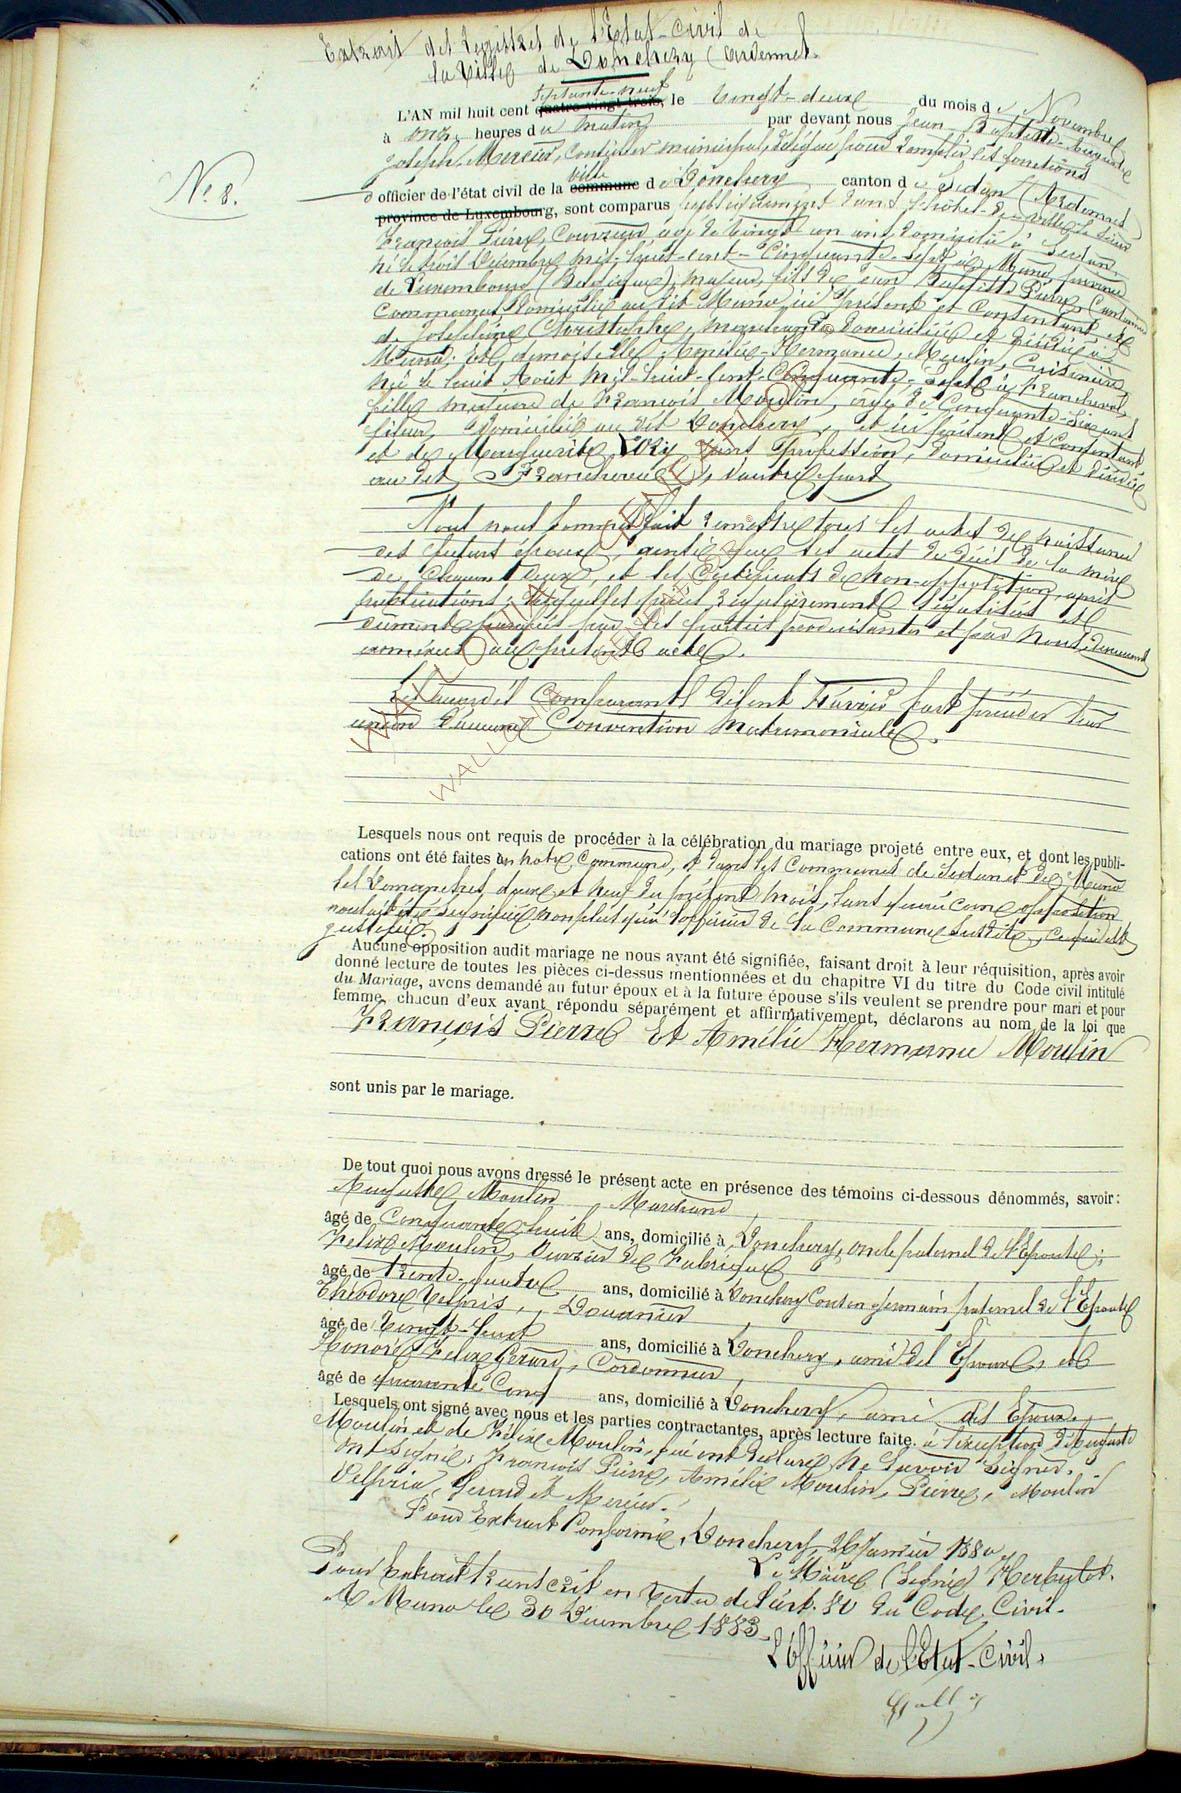 Extrait des Registres de l'Etat-Civil de
la Ville de Donchery (Ardennes.
L'AN mil huit cent quatre-vingt trois, septante-neuf le vingt-deux du mois de Novembre
à onze heures du matin par devant nous Jean Baptiste Auguste
Joseph Mercier, Conseiller municipal, délégué pour remplir les fonctions
N° 8.
d'officier de l'état civil de la commune ville de Donchery canton de Sedan (Ardennes
province de Luxembourg, sont comparus publiquement dans l'hôtel-de-ville le sieur
François Pierre, Couvreur âgé de vingt un ans, domicilié à Sedan,
né le trois Décembre mil-huit-cent-Cinquante-sept à Muno province
de Luxembourg (Belgique), majeur, fils de Jean Baptiste Pierre, Cantonnier
Communal domicilié au dit Muno, ici présent et Consentant, et
de Joséphine Christophe, domiciliée et décédée à
Muno; et demoiselle Amélie-Hermance Moulin, Cuisinière,
née le huit Août mil-huit-cent-Cinquante-sept à Francheval
fille majeure de François Moulin, âgé de Cinquante-six ans
fileur, domicilié au dit Donchery, et ici présent et Consentant
et de Marguerite sans profession, domiciliée et décédée
au dit Francheval, d'autre part
Nous nous sommes fait remettre tous les actes de naissance
des futurs époux, ainsi que les actes de décès de la mère
de chacun d'eux, et les Certificats de non-opposition après
publications; lesquelles pièces régulièrement légalisées et
dûment paraphées par les parties produisantes et par nous, demeurent
annexées au présent acte.
Les Comparants disent n'avoir fait précéder leur
union d'aucune Convention matrimoniale.
Lesquels nous ont requis de procéder à la célébration du mariage projeté entre eux, et dont les publi-
cations ont été faites en notre Commune, et dans les Communes de Sedan et de Muno
les Dimanches, deux et neuf du présent mois, sans qu'aucune opposition
nous ait été signifiée non plus qu'à l'officier de la Commune susdite, ce qui est
justifié;
Aucune opposition audit mariage ne nous ayant été signifiée, faisant droit à leur réquisition, après avoir
donné lecture de toutes les pièces ci-dessus mentionnées et du chapitre VI du titre du Code civil intitulé
du Mariage, avons demandé au futur époux et à la future épouse s'ils veulent se prendre pour mari et pour
femme, chacun d'eux ayant répondu séparément et affirmativement, déclarons au nom de la loi que
François Pierre Et Amélie Hermance Moulin
sont unis par le mariage.
De tout quoi nous avons dressé le présent acte en présence des témoins ci-dessous dénommés, savoir:
Auguste Moulin, Marchand,
âgé de Cinquante-huit ans, domicilié à Donchery, oncle paternel de l'Epouse;
Félix Moulin, Ouvrier de Fabrique
âgé de trente-quatre ans, domicilié à Donchery Cousin germain paternel de l'Epouse
Théodore Delpris, Douanier
âgé de Vingt-Sept ans, domicilié à Donchery, ami de l'Epoux, et
Honoré Félix Gérard, Cordonnier,
âgé de quarante Cinq ans, domicilié à Donchery, ami des Epoux.
Lesquels ont signé avec nous et les parties contractantes, après lecture faite. à l'exception d'Auguste
Moulin et de Félix Moulin, qui ont déclaré ne Savoir Signer.
Ont signé: François Pierre, Amélie Moulin, Pierre, Moulin
Gérard et Mercier.
Pour Extrait Conforme, Donchery, 26 Janvier 1880,
Le Maire (Signé) Herbulot.
Pour Extrait transcrit en Vertu de l'art. 80 du Code Civil.
A Muno le 30 Décembre 1883.
L'Officier de l'Etat-Civil.